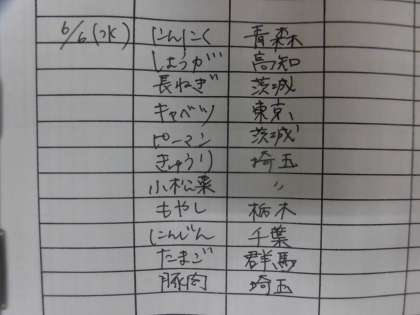 6/6(水) にんにく 青森
しょうが 高知
長ねぎ 茨城
キャベツ 東京
ピーマン 茨城
きゅうり 埼玉
小松菜 〃
もやし 栃木
にんじん 千葉
たまご 群馬
豚肉 埼玉